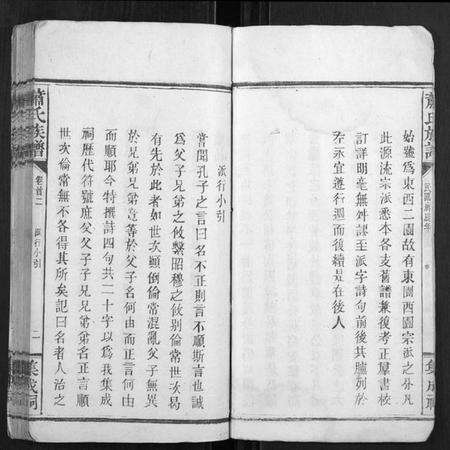 蕭氏族譜
始號為東西二園故有東園西園宗派之分凡
此源流宗派悉本各支舊譜兼後考正羣書校
訂詳明毫無舛謬至派字詩句前後具臚列於
左永宜遵行週而後續是在後人
集成祠
派行小引
嘗聞孔子之言曰名不正則言不順斯言也誠
為父子兄弟之攸繫昭穆之攸別倫常世次莫
有先於此者如世次顛倒倫常混亂父子無異
於兄弟兄弟竟等於父子名何由而正言何由
而順耶今特撰詩四句共二十字以為我集成
祠歷代符號庶幾父父子子兄兄弟弟名正言順
世次倫常無不各得其所矣記曰名者人治之
蕭氏族譜
卷首二
派行小引
集成祠